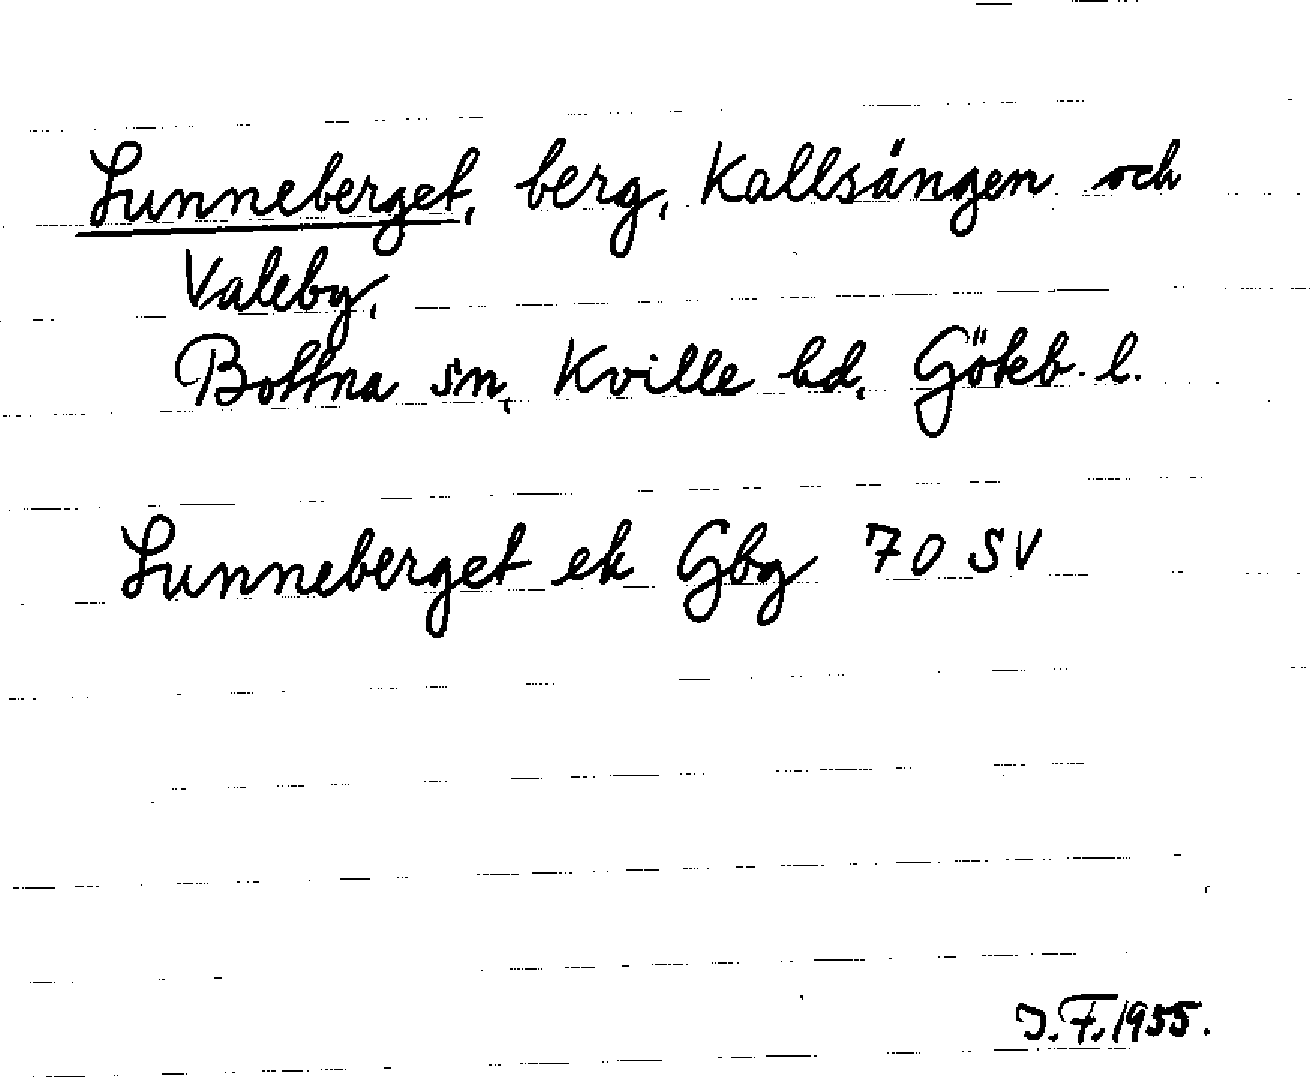 Lunneberget, berg, Kallsängen och
Valeby,
Bottna sn, Kville hd, Göteb. l.
Lunneberget ek Gbg 70 SV
I.F. 1955.